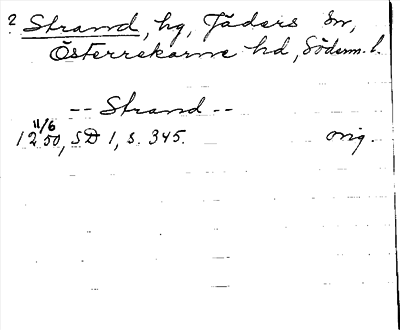 ? Strand, hg, Jäders sn,
Österrekarne hd, Söderm. l.
-- Strand --
11/6
1250, SD 1, s. 345. orig.